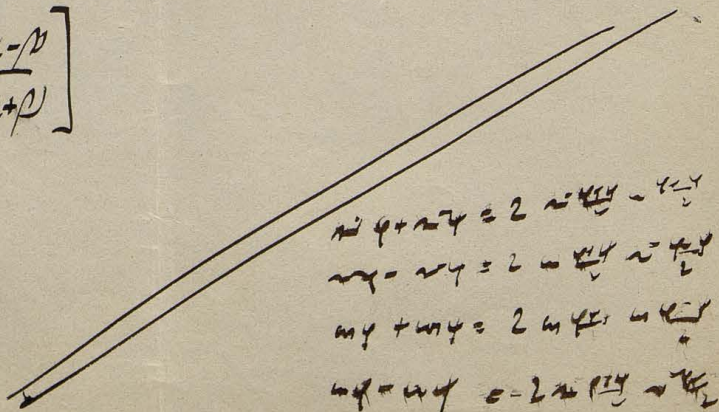 sin φ + sin ψ = 2 sin (φ+ψ)/2 cos (φ-ψ)/2
sin φ - sin ψ = 2 cos (φ+ψ)/2 sin (φ-ψ)/2
cos φ + cos ψ = 2 cos (φ+ψ)/2 cos (φ-ψ)/2
cos φ - cos ψ = -2 sin (φ+ψ)/2 sin (φ-ψ)/2